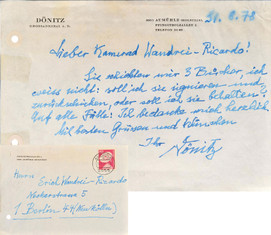 DÖNITZ
GROSSADMIRAL A. D.
2055 AUMÜHLE
21.8.78
Lieber Kamerad Wandrei-Ricardo!
Sie schickten mir 3 Bücher, ich
weiss nicht: soll ich sie signieren und
zurückschicken, oder soll ich sie behalten?
Auf alle Fälle: Ich bedanke mich herzlich
Mit besten Grüssen und Wünschen
Ihr Dönitz
Herrn Erich Wandrei-Ricardo
1 Berlin 44 (Neukölln)